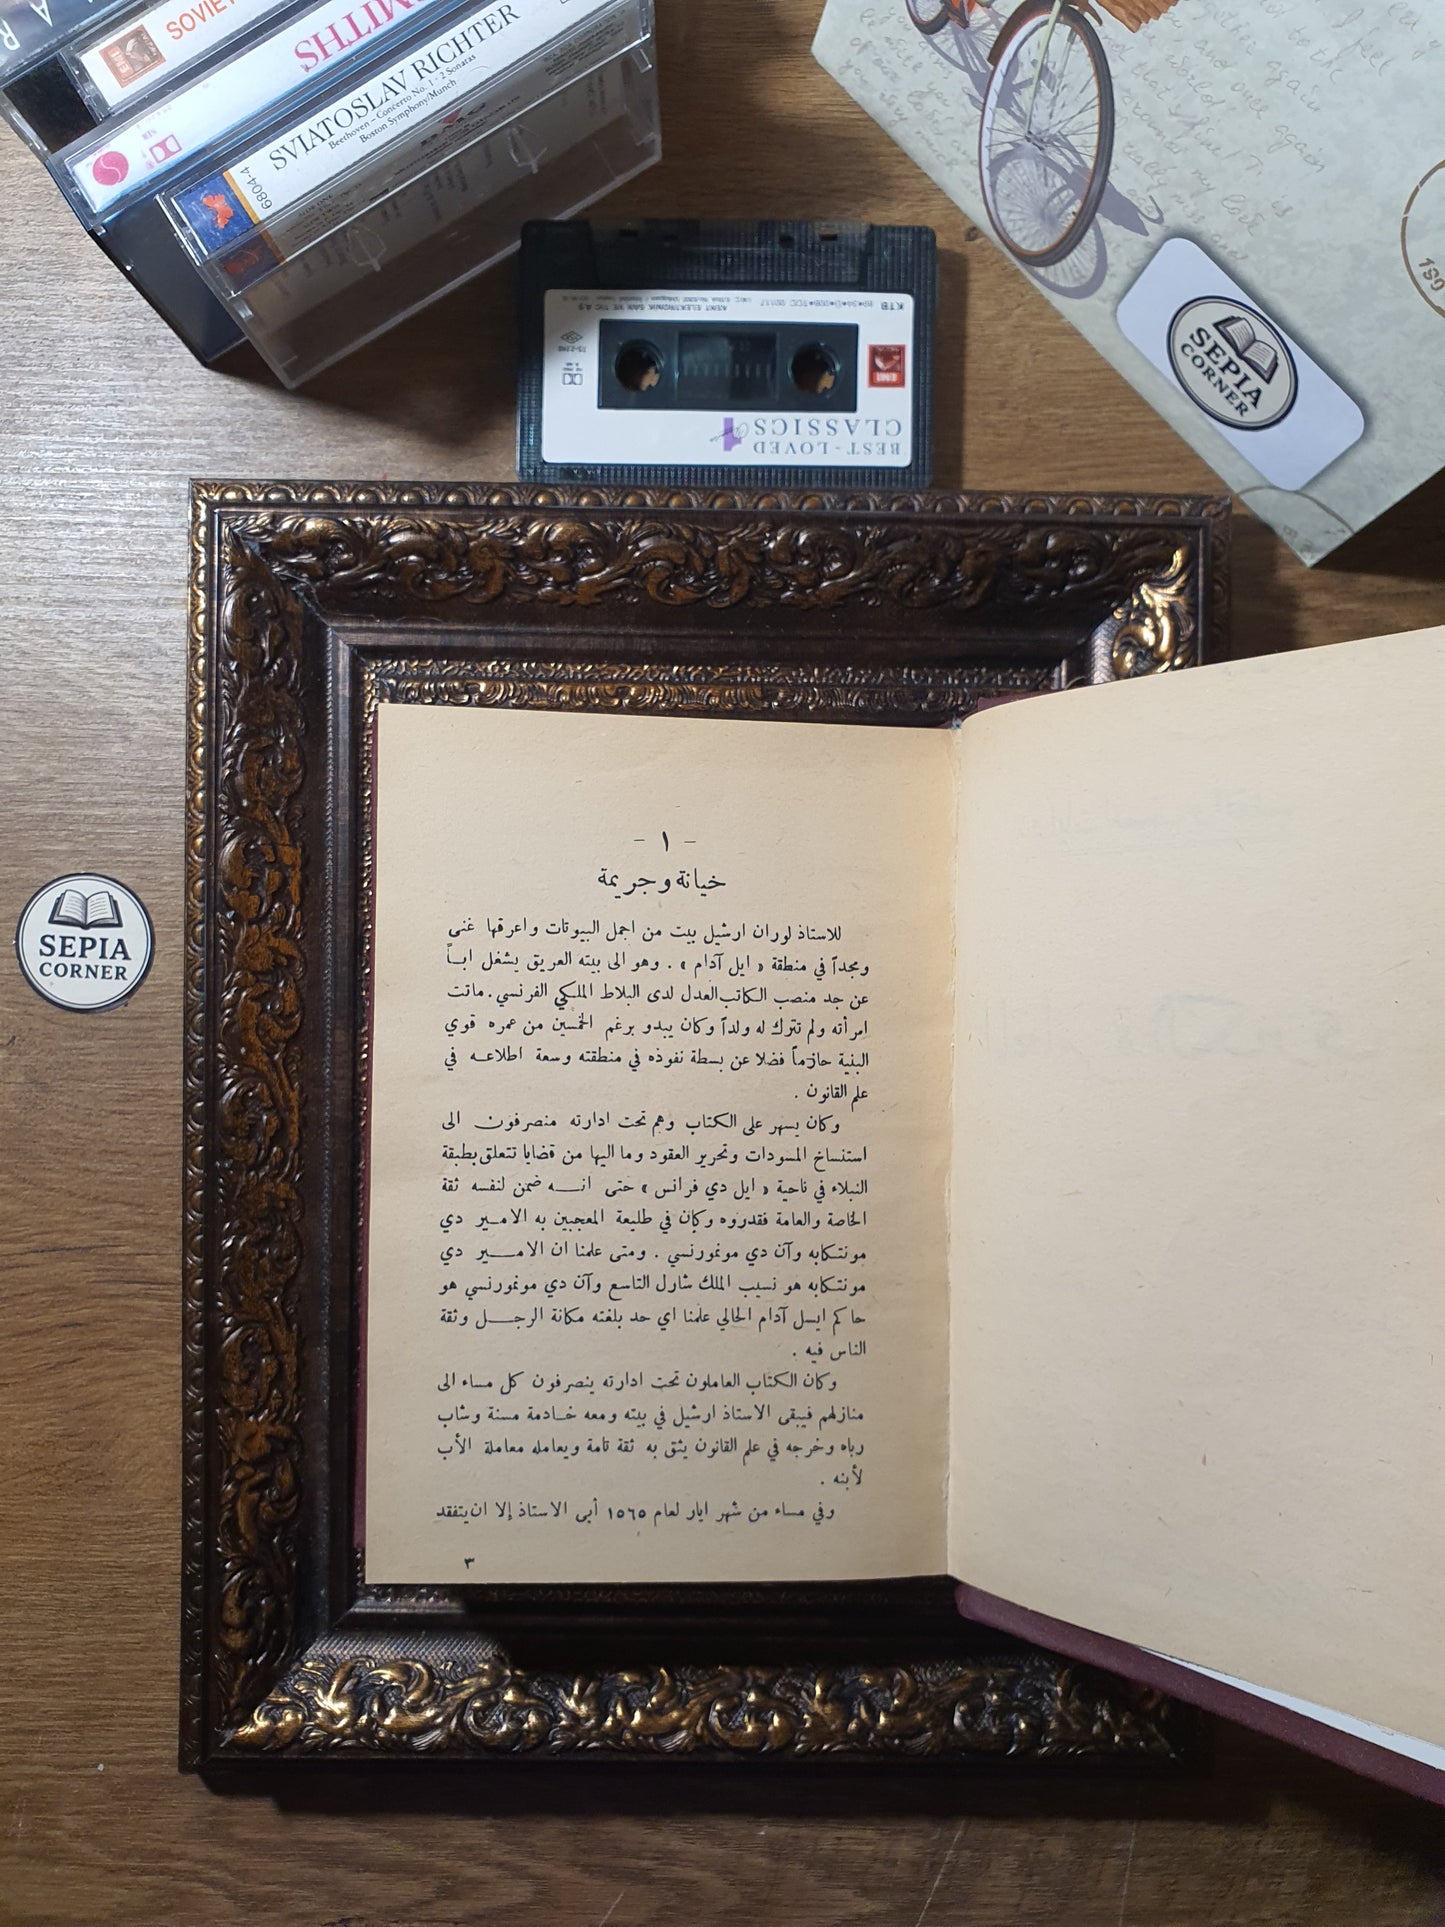 SOVIET
SMITHS
SVIATOSLAV RICHTER
Beethoven – Concerto No. 1 · 2 Sonatas
Boston Symphony/Munch
6804-4
BEST-LOVED
CLASSICS
4
EMI
KTB
SEPIA
CORNER
190
SEPIA
CORNER
– ١ –
خيانة وجريمة
للاستاذ لوران ارشيل بيت من اجمل البيوتات واعرقها غنى
ومجداً في منطقة « ايل آدام » . وهو الى بيته العريق يشغل ابـاً
عن جد منصب الكاتب العدل لدى البلاط الملكي الفرنسي . ماتت
امرأته ولم تترك له ولداً وكان يبدو برغم الخمسين من عمره قوي
البنية حازماً فضلا عن بسطة نفوذه في منطقته وسعة اطلاعـه في
علم القانون .
وكان يسهر على الكتاب وهم تحت ادارته منصرفون الى
استنساخ المسودات وتحرير العقود وما اليها من قضايا تتعلق بطبقة
النبلاء في ناحية « ايل دي فرانس » حتى انـــه ضمن لنفسه ثقة
الخاصة والعامة فقدروه وكان في طليعة المعجبين به الامـير دي
مونتكابه وآن دي مونمورنسي . ومتى علمنا ان الامـــير دي
مونتكابه هو نسيب الملك شارل التاسع وآن دي مونمورنسي هو
حاكم ايسل آدام الحالي علمنا اي حد بلغته مكانة الرجـــل وثقة
الناس فيه .
وكان الكتاب العاملون تحت ادارته ينصرفون كل مساء الى
منازلهم فيبقى الاستاذ ارشيل في بيته ومعه خـادمة مسنة وشاب
رباه وخرجه في علم القانون يثق به ثقة تامة ويعامله معاملة الأب
لأبنه .
وفي مساء من شهر ايار لعام ١٥٦٥ أبى الاستاذ إلا ان يتفقد
٣